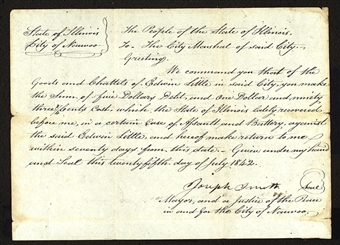 State of Illinois
City of Nauvoo
The People of the State of Illinois.
To The City Marshal of said City—
Greeting.
We command you that of the
Goods and Chattels of Edwin Little in said City, you make
the Sum of five Dollars Debt, and one Dollar and ninety
three ¾ Cents Cost, which the State of Illinois lately recovered
before me, in a certain Case of Assault and Battery, against
the said Edwin Little, and hereof make return to me
within seventy days from this date.— Given under my hand
and Seal this twenty fifth day of July 1842.
Joseph Smith
Seal
Mayor, and a Justice of the Peace
in and for the City of Nauvoo.